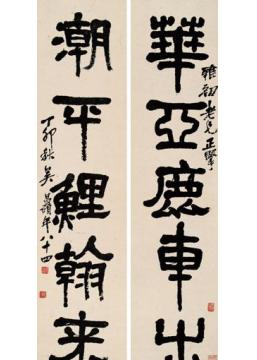 雅初老兄正
華亞鹿車出
潮平鯉翰来
丁卯秋吳昌碩年八十四